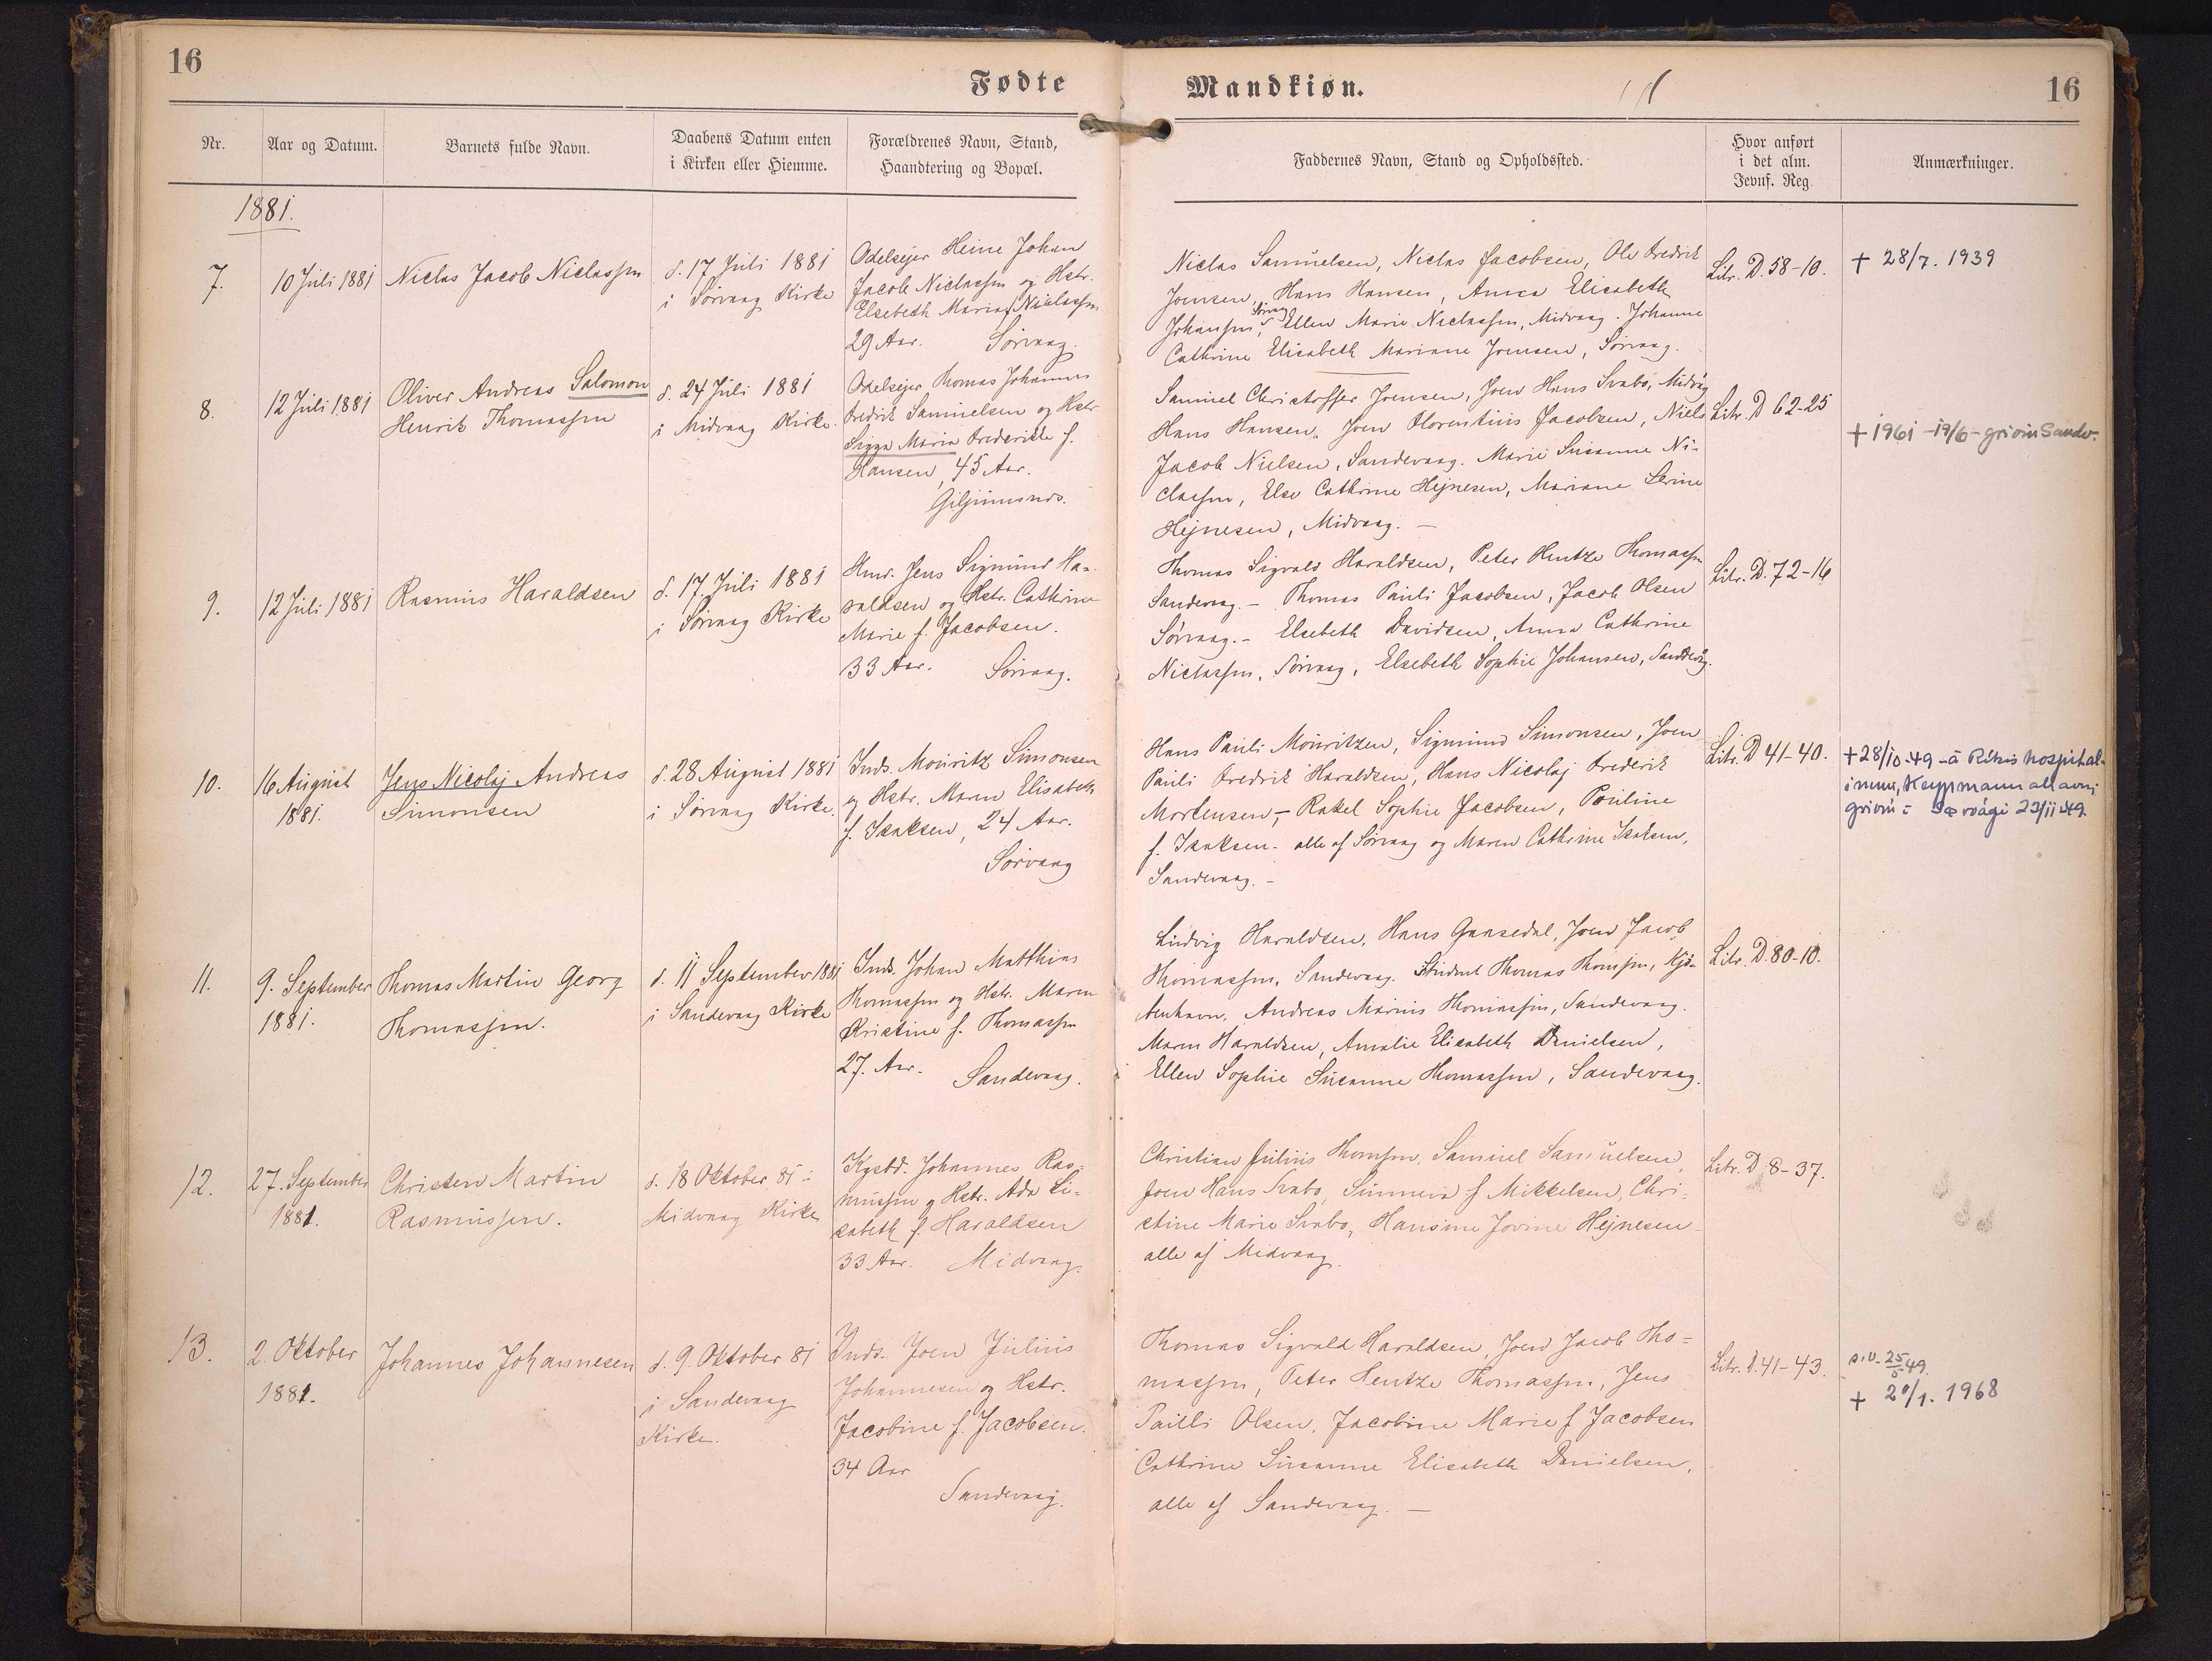 16
Fødte
Mandkiøn.
16
Nr.
Aar og Datum.
Barnets fulde Navn.
Daabens Datum enten
i Kirken eller Hiemme.
Forældrenes Navn, Stand,
Haandtering og Bopæl.
Faddernes Navn, Stand og Opholdssted.
Hvor anført
i det alm.
Jevnf. Reg.
Anmærkninger.
1881.
7.
10 Juli 1881
Niclas Jacob Niclassen
d. 17 Juli 1881
i Sørvaag Kirke
Odelsejer Heine Johan
Jacob Niclassen og Hstr.
Elsebeth Maria f. Niclassen
29 Aar. Sørvaag.
Niclas Samuelsen, Niclas Jacobsen, Ole Fredrik
Joensen, Hans Hansen, Anna Elisabeth
Johansen, Sørvaag, Ellen Marie Niclassen, Midvaag. Johanne
Cathrine Elisabeth Mariane Joensen, Sørvaag.
Litr. D. 58-10.
+ 28/7. 1939
8.
12 Juli 1881
Oliver Andreas Salomon
Henrik Thomassen
d. 24 Juli 1881
i Midvaag Kirke.
Odelsejer Thomas Johannes
Fredrik Samuelsen og Hstr
Sigga Maria Frederikke f.
Hansen, 45 Aar.
Giljumsnæs.
Samuel Christoffer Joensen, Joen Hans Svabo, Midvåg
Hans Hansen, Joen Florentius Jacobsen, Niels
Jacob Nielsen, Sandevaag. Marie Susanne Ni-
classen, Else Cathrine Hejnesen, Mariane Serine
Hejnesen, Midvaag. —
Litr. D 62-25
+ 1961 - 19/6 - grivin Sandv.
9.
12 Juli 1881
Rasmus Haraldsen
d. 17. Juli 1881
i Sørvaag Kirke
Hmd. Jens Sigmund Ha-
raldsen og Hstr. Cathrine
Marie f. Jacobsen.
33 Aar. Sørvaag.
Thomas Sigvald Haraldsen, Peter Hentze Thomassen
Sandevaag. — Thomas Pauli Jacobsen, Jacob Olsen
Sørvaag. — Elsebeth Davidsen, Anna Cathrine
Niclassen, Sørvaag, Elsebeth Sophie Johansen, Sandevåg.
Litr. D. 72-16
10.
16 August
1881.
Jens Nicolaj Andreas
Simonsen
d. 28 August 1881
i Sørvaag Kirke.
Inds. Mouritz Simonsen
og Hstr. Maren Elisabeth
f. Isaksen, 24 Aar.
Sørvaag
Hans Pauli Mouritzen, Sigmund Simonsen, Joen
Pauli Fredrik Haraldsen, Hans Nicolaj Frederik
Mortensen, — Rakel Sophie Jacobsen, Pouline
f. Isaksen. alle af Sørvaag og Maren Cathrine Isaksen,
Sandevaag. —
Litr. D 41-40.
+ 28/10-49 - á Ríkis hospital-
inum, Keypmannahavn,
grivin í Sørvági 22/11-49.
11.
9. September
1881.
Thomas Martin Georg
Thomassen.
d. 11 September 1881
i Sandevaag Kirke
Inds. Johan Matthias
Thomassen og Hstr. Maren
Kristine f. Thomassen
27. Aar. Sandevaag.
Ludvig Haraldsen, Hans Gaasedal, Joen Jacob
Thomassen, Sandevaag. Student Thomas Thomsen, Kjø-
benhavn. Andreas Marius Thomassen, Sandevaag.
Maren Haraldsen, Amalie Elisabeth Danielsen,
Ellen Sophie Susanne Thomassen, Sandevaag.
Litr. D. 80-10.
12.
27. September
1881.
Christen Martin
Rasmussen.
d. 18 Oktober 81 i
Midvaag Kirke
Kgsbd. Johannes Ras-
mussen og Hstr. Ada Li-
sabeth f. Haraldsen
33 Aar. Midvaag.
Christian Julius Thomsen, Samuel Samuelsen,
Joen Hans Svabo, Sunneva f Mikkelsen, Chri-
stine Marie Svabo, Hansine Jovine Hejnesen
alle af Midvaag.
Litr. D 8-37.
13.
2. Oktober
1881.
Johannes Johannesen
d. 9. Oktober 81
i Sandevaag
Kirke.
Inds. Joen Julius
Johannesen og Hstr.
Jacobine f. Jacobsen.
34 Aar
Sandevaag.
Thomas Sigvald Haraldsen, Joen Jacob Tho-
massen, Peter Hentze Thomassen, Jens
Pauli Olsen, Jacobine Marie f Jacobsen
Cathrine Susanne Elisabeth Danielsen,
alle af Sandevaag. —
Litr. D. 41-43.
25/5 49.
+ 20/1. 1968